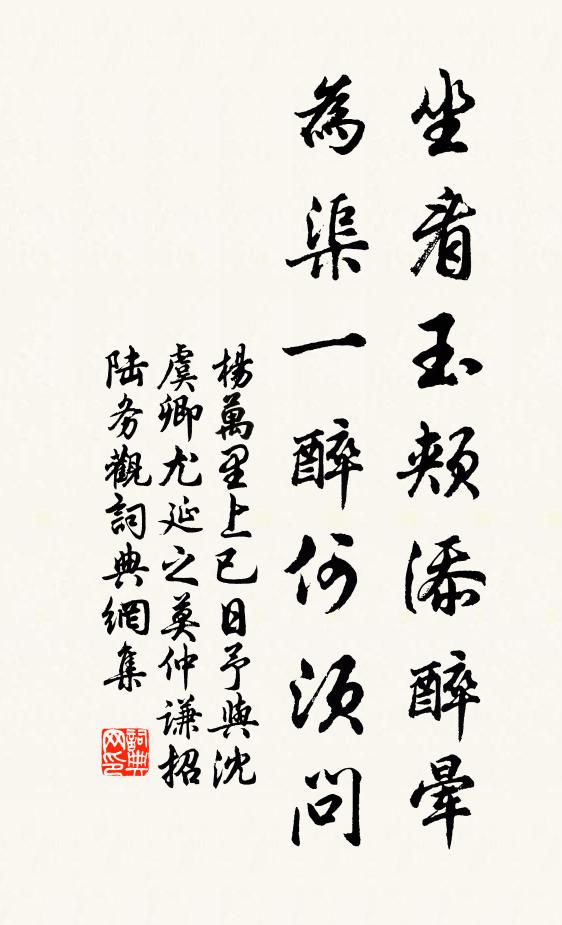 坐看玉頰添醉暈
為渠一醉何須問
楊萬里上巳日予與沈
虞卿尤延之莫仲謙招
陆务觀詞典網集
詞典网印